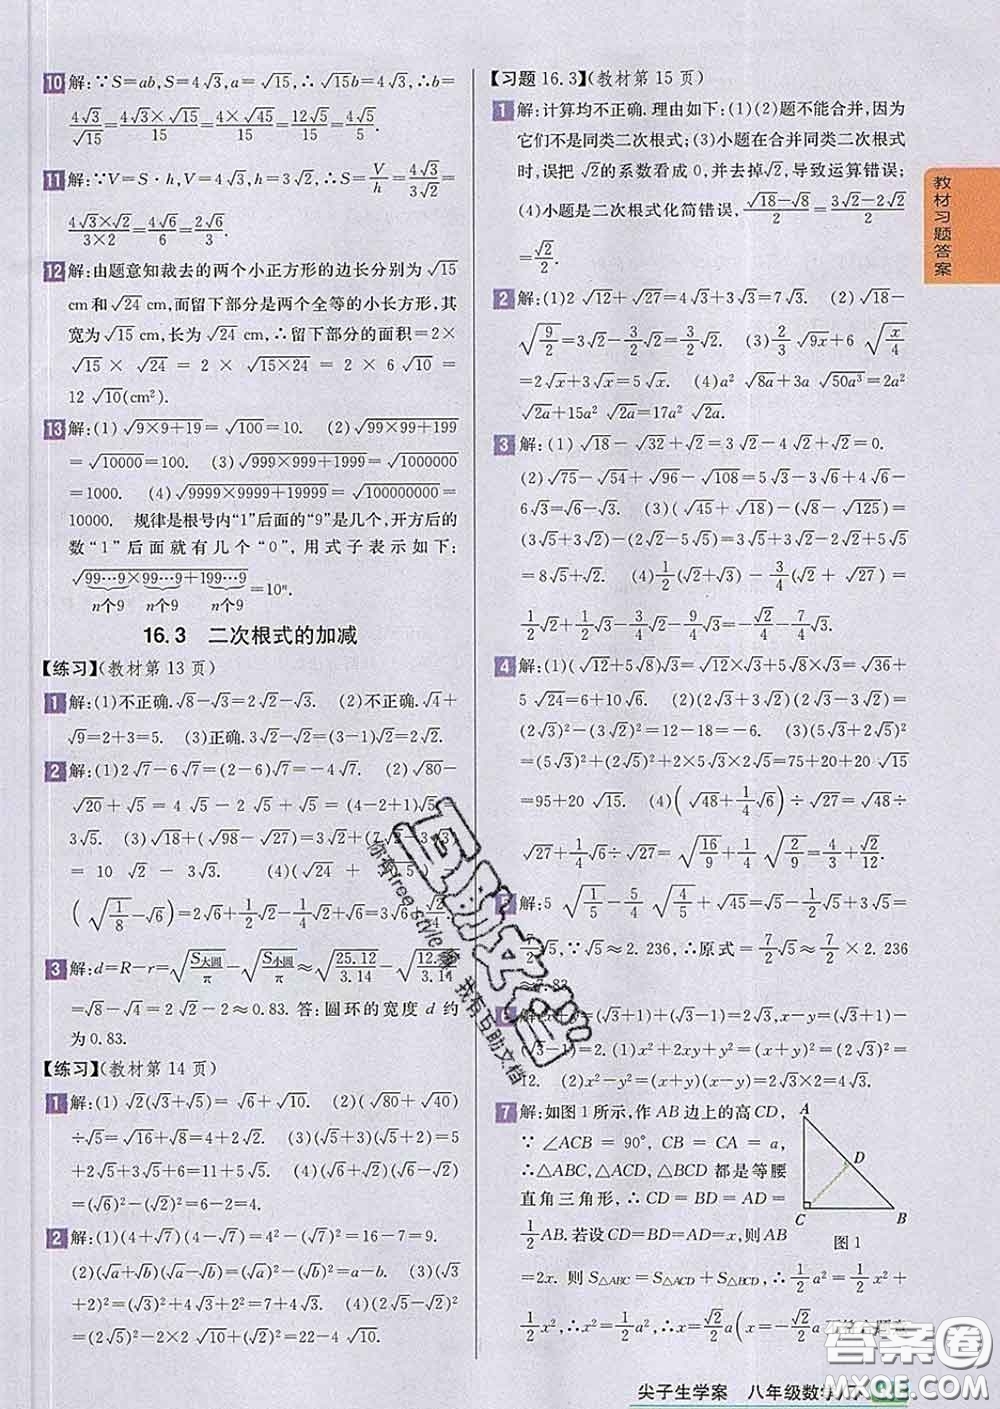 10 解:∵S=ab,S=4√3,a=√15,∴√15b=4√3,∴b=
4√3/√15=4√3×√15/15=4×√45/15=12√5/15=4√5/5.
11 解:∵V=S·h,V=4√3,h=3√2,∴S=V/h=4√3/3√2=
4√3×√2/3×2=4√6/6=2√6/3.
12 解:由题意知裁去的两个小正方形的边长分别为√15
cm和√24 cm,而留下部分是两个全等的小长方形,其
宽为√15 cm,长为√24 cm,∴留下部分的面积=2×
√15 × √24 = 2 × √15×24 = 2 × 6√10 =
12√10(cm²).
13 解:(1)√9×9+19=√100=10. (2)√99×99+199
=√10000=100. (3)√999×999+1999=√1000000
=1000. (4)√9999×9999+19999=√100000000=
10000. 规律是根号内“1”后面的“9”是几个,开方后的
数“1”后面就有几个“0”,用式子表示如下:
√99…9×99…9+199…9=10ⁿ.
n个9 n个9 n个9
16.3 二次根式的加减
【练习】(教材第13页)
1 解:(1)不正确.√8-√3=2√2-√3. (2)不正确.√4+
√9=2+3=5. (3)正确.3√2-√2=(3-1)√2=2√2.
2 解:(1)2√7-6√7=(2-6)√7=-4√7. (2)√80-
√20+√5=4√5-2√5+√5=(4-2+1)√5=
3√5. (3)√18+(√98-√27)=3√2+(7√2-3√3)
= 10√2 - 3√3. (4)(√24+
(√1/8-√6)=2√6+1/2√2-1/4√2+√6=3√6
3 解:d=R-r=√S大圆/π-√S小圆/π≈√25.12/3.14-√12.
3.14
=√8-√4=2√2-2≈0.83. 答:圆环的宽度 d 约
为0.83.
【练习】(教材第14页)
1 解:(1)√2(√3+√5)=√6+√10. (2)(√80+√40)
÷√5=√16+√8=4+2√2. (3)(√5+3)(√5+2)=5
+2√5+3√5+6=11+5√5. (4)(√6+√2)(√6-√2)
=(√6)²-(√2)²=6-2=4.
2 解:(1)(4+√7)(4-√7)=4²-(√7)²=16-7=9.
(2)(√a+√b)(√a-√b)=(√a)²-(√b)²=a-b. (3)(√3
+2)²=(√3)²+4√3+2²=7+4√3. (4)(2√5-√2)²
=(2√5)²-2×2√10+(√2)²=22-4√10.
【习题16.3】(教材第15页)
1 解:计算均不正确.理由如下:(1)(2)题不能合并,因为
它们不是同类二次根式;(3)小题在合并同类二次根式
时,误把√2的系数看成0,并去掉√2,导致运算错误;
(4)小题是二次根式化简错误,√18-√8/2=3√2-2√2/2
=√2/2.
2 解:(1)2√12+√27=4√3+3√3=7√3. (2)√18-
√9/2=3√2-3/2√2=3/2√2. (3)2/3√9x+6√x/4
=2√x+3√x=5√x. (4)a²√8a+3a√50a³=2a²
√2a+15a²√2a=17a²√2a.
3 解:(1)√18-√32+√2=3√2-4√2+√2=0.
(2)√75-√54+√96-√108=5√3-3√6+4√6
-6√3=√6-√3. (3)(√45+√18)-(√8-√125)=
(3√5+3√2)-(2√2-5√5)=3√5+3√2-2√2+5√5
=8√5+√2. (4)1/2(√2+√3)-3/4(√2+√27)=
1/2√2+1/2√3-3/4√2-9/4√3=-√2/4-7/4√3.
4 解:(1)(√12+5√8)√3=√12×√3+5√8×√3=√36+
5√24=6+10√6. (2)(2√3+3√2)(2√3-3√2)=
(2√3)²-(3√2)²=12-18=-6. (3)(5√3+2√5)²=
(5√3)²+(2√5)²+2×5×2×√3×√5=75+20+20√15
=95+20√15. (4)(√48+1/4√6)÷√27=√48÷
√27+1/4√6÷√27=√16/9+1/4√2/9=4/3+√2/12.
5 解:5√1/5-5/4√4/5+√45=√5-√5/2+3√5=
7/2√5,∵√5≈2.236,∴原式=7/2√5≈7/2×2.236
6 解:x+y=(√3+1)+(√3-1)=2√3,x-y=(√3+1)-
(√3-1)=2. (1)x²+2xy+y²=(x+y)²=(2√3)²=
12. (2)x²-y²=(x+y)(x-y)=2√3×2=4√3.
7 解:如图1所示,作AB边上的高CD,
∵∠ACB=90°,CB=CA=a,
∴△ABC,△ACD,△BCD都是等腰
直角三角形,∴CD=BD=AD=
1/2AB. 若设CD=BD=AD=x,则AB
=2x. 则S△ABC=S△ACD+S△BCD,∴1/2a²=1/2x²+
1/2x²,∴x²=1/2a²,∴x=√2/2a(x=-√2/2a
A
D
C
B
图1
教材习题答案
互助文档
你有free style
我有互助文档
答案圈
MXQE.COM
尖子生学案 八年级数学